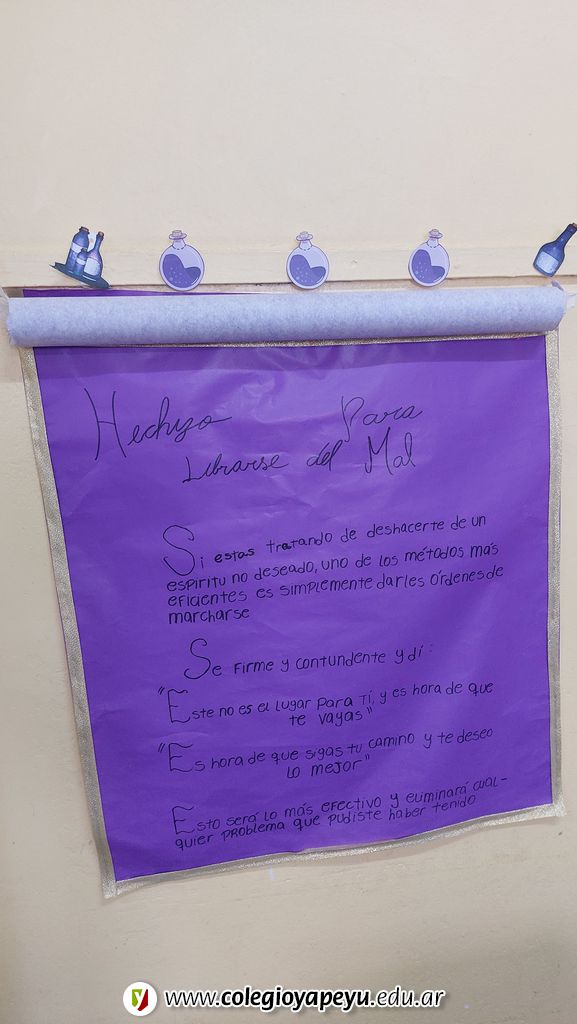 Hechizo Para
Librarse del Mal
Si estas tratando de deshacerte de un
espiritu no deseado, uno de los métodos más
eficientes es simplemente darles órdenes de
marcharse
Se firme y contundente y di:
"Este no es el lugar para Tí, y es hora de que
te vayas"
"Es hora de que sigas tu camino y te deseo
lo mejor"
Esto será lo más efectivo y eliminará cual-
quier problema que pudiste haber tenido
www.colegioyapeyu.edu.ar